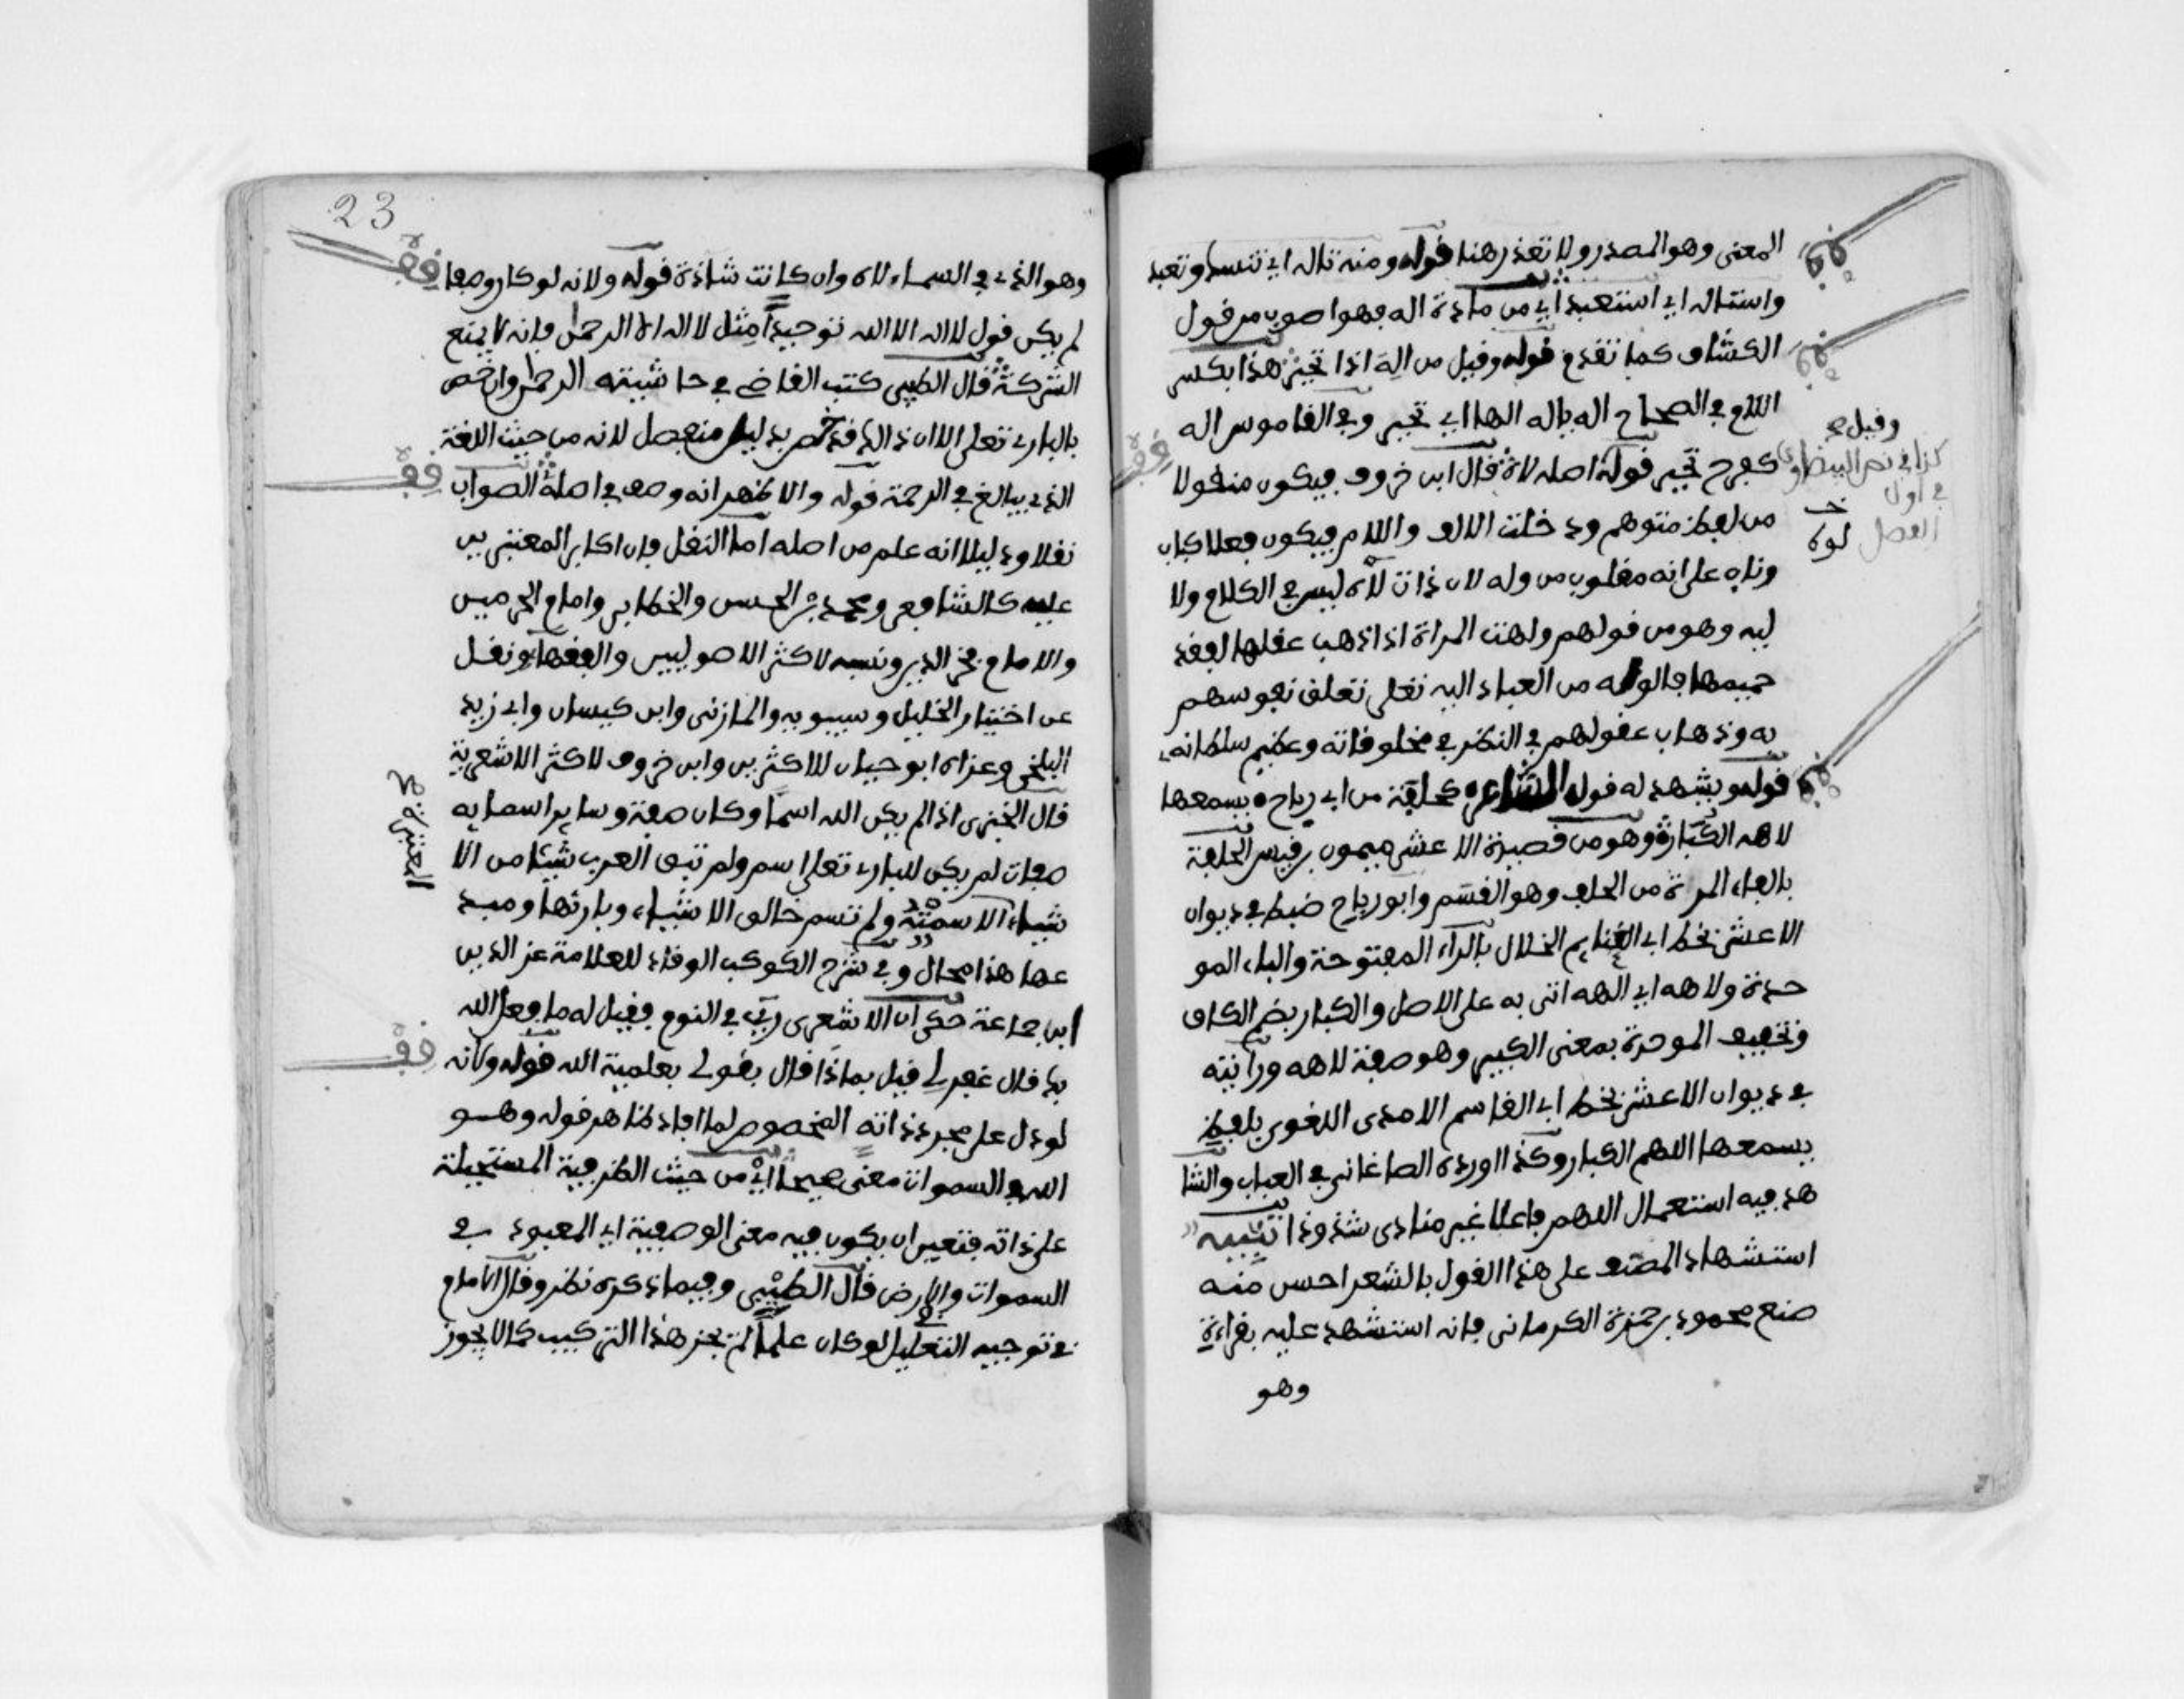 المعنى وهو المصدر ولا تعذر هنا قوله ومنه تاله اي تنسك وتعبد
واستاله اي استعبد اي من مادة اله فهو اصوب من قول
الكشاف كما تقدم قوله وقيل من اله اذا تحير هذا بكسر
اللام في الصحاح اله ياله الها اي تحير وفي القاموس اله
كفرح تحير قوله اصله لاه قال ابن خروف فيكون منقولا
من لفظ متوهم ودخلت الالف واللام فيكون فعلا كباب
وناب على انه مقلوب من وله لان ذات لاه ليس في الكلام ولا
ليه وهو من قولهم ولهت المراة اذا ذهب عقلها لفقد
حميمها فالوله من العباد اليه تعلى تعلق نفوسهم
به وذهاب عقولهم في النظر في مخلوقاته وعظيم سلطانه
قوله ويشهد له قول الشاعر كحلفة من ابي رياح يسمعها
لاهه الكبار وهو من قصيدة الاعشى ميمون بن قيس الحلفة
بالفاء المرة من الحلف وهو القسم وابو رياح ضبط في ديوان
الاعشى بخط ابي الغنايم الخلال بالراء المفتوحة والباء المو
حدة ولاهه اي الهه اتى به على الاصل والكبار بضم الكاف
وتخفيف الموحدة بمعنى الكبير وهو صفة لاهه ورايته
في ديوان الاعشى بخط ابي القاسم الامدي اللغوي بلفظ
يسمعها اللهم الكبار وكذا اورده الصاغاني في العباب والشا
هد فيه استعمال اللهم فاعلا غير منادى شذوذا تنبيه
استشهاد المصنف على هذا القول بالشعر احسن منه
صنع محمود بن حمزة الكرماني فانه استشهد عليه بقراءة
وهو
وقيل
كذا في نص البيضاوي
في اول
الفصل
لوه
23
وهو الذي في السماء لاه وان كانت شاذة قوله ولانه لو كان وصفا
لم يكن قول لا اله الا الله توحيدا مثل لا اله الا الرحمن فانه لا يمنع
الشركة قال الطيبي كتب القاضي في حاشيته الرحمن وان خص
بالباري تعلى الا ان ذلك قد حصر بدليل منفصل لانه من حيث اللغة
الذي يبالغ في الرحمة قوله والاظهر انه وصف في اصله الصواب
نقلا ودليلا انه علم من اصله اما النقل فان اكابر المعتبرين
عليه كالشافعي ومحمد بن الحسن والخطابي وامام الحرمين
والامام فخر الدين ونسبه لاكثر الاصوليين والفقهاء ونقل
عن اختيار الخليل وسيبويه والمازني وابن كيسان وابي زيد
البلخي وعزاه ابو حيان للاكثرين وابن خروف لاكثر الاشعرية
قال الخنزي اذا لم يكن الله اسما وكان صفة وساير اسمايه
صفات لم يكن للباري تعلى اسم ولم تبق العرب شيئا من الا
شياء الا سمته ولم تسم خالق الاشياء وبارئها ومبد
عها هذا محال وفي شرح الكوكب الوقاد للعلامة عز الدين
ابن جماعة حكي ان الاشعري ريي في النوم فقيل له ما فعل الله
بك قال غفر لي قيل بماذا قال بقولي بعلمية الله قوله ولانه
لو دل على مجرد ذاته المخصوص لما افاد ظاهر قوله وهو
الله في السموات معنى صحيحا اي من حيث الظرفية المستحيلة
على ذاته فتعين ان يكون فيه معنى الوصفية اي المعبود في
السموات والارض قال الطيبي وفيما ذكره نظر وقال الامام
في توجيه التعليل لو كان علما لم يجز هذا التركيب كما لا يجوز